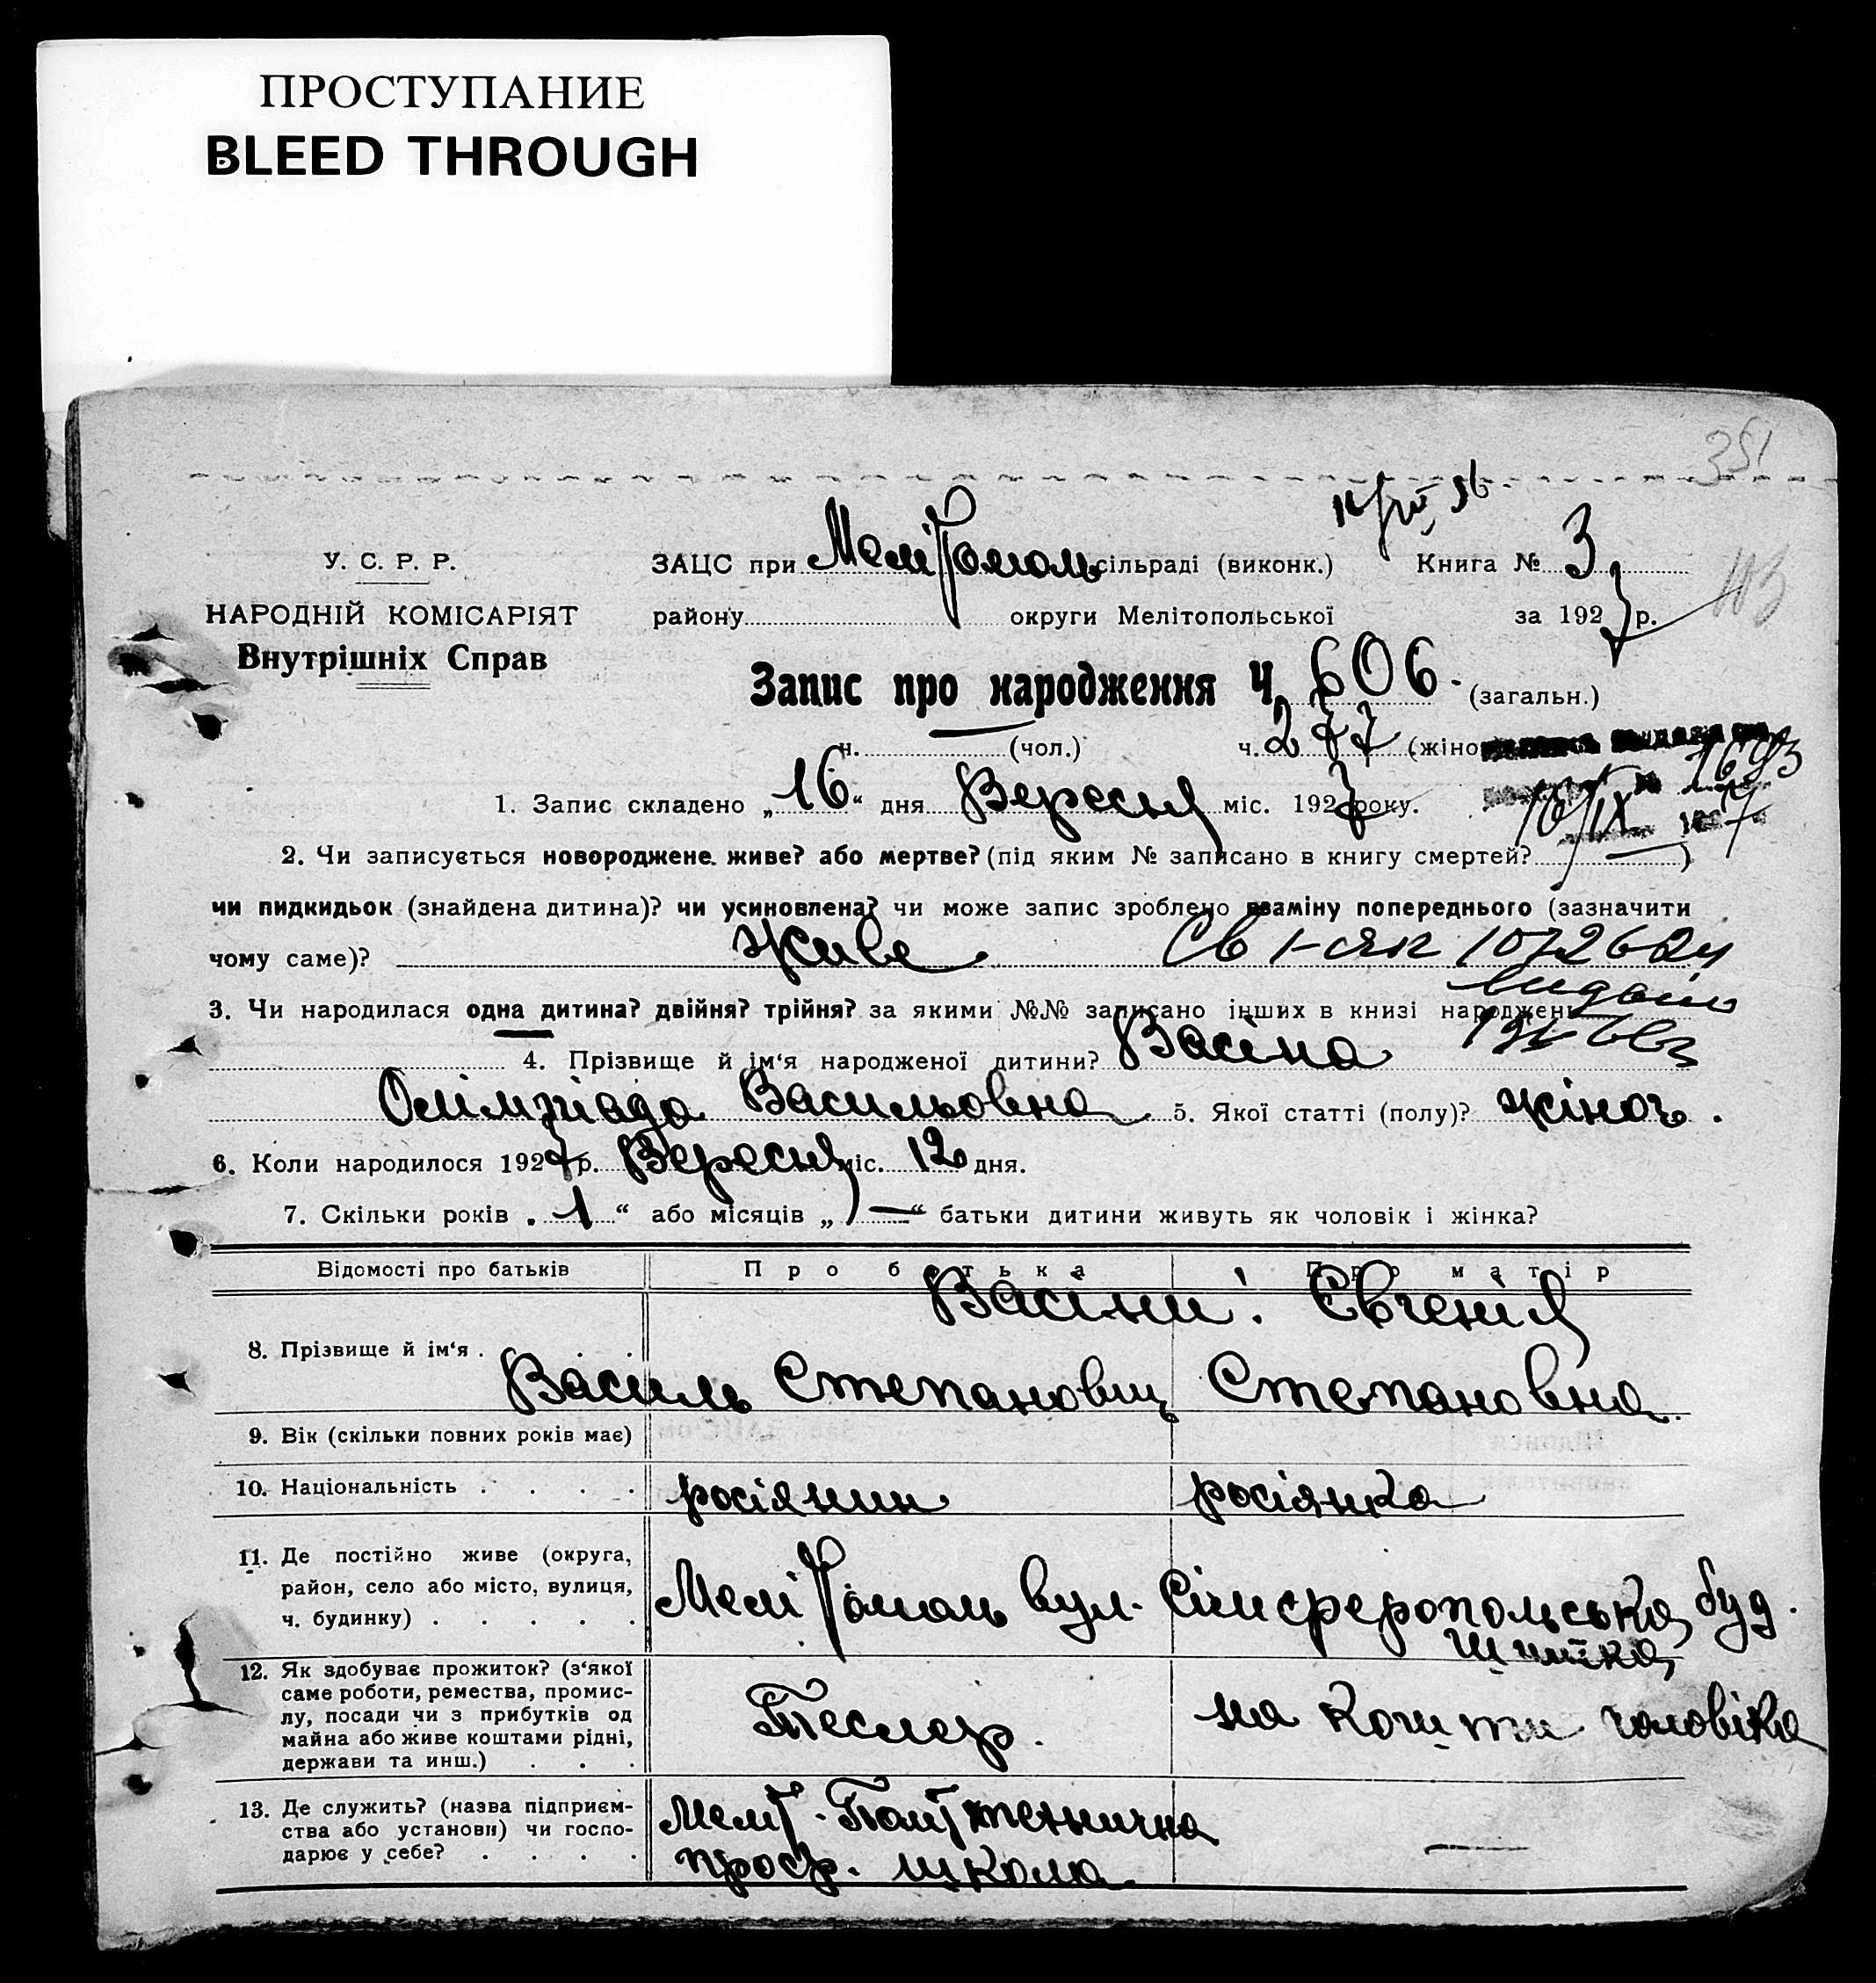 ПРОСТУПАНИЕ
BLEED THROUGH
351
У. С. Р. Р.
ЗАЦС при Мелітополь сільраді (виконк.) Книга № 3
НАРОДНІЙ КОМІСАРІЯТ
району округи Мелітопольської за 1927 р.
Внутрішніх Справ
Запис про народження Ч. 606. (загальн.)
ч. — (чол.) ч. 277 (жіно
1693
1. Запис складено „16“ дня Вересня міс. 1927 року.
2. Чи записується новороджене живе? або мертве? (під яким № записано в книгу смертей? — )
чи пидкидьок (знайдена дитина)? чи усиновлена? чи може запис зроблено взаміну попереднього (зазначити
чому саме)? живе
3. Чи народилася одна дитина? двійня? трійня? за якими №№ записано інших в книзі народжень
4. Прізвище й ім‘я народженої дитини? Васіна
Олімпіада Васильовна 5. Якої статті (полу)? жіноч.
6. Коли народилося 1927 р. Вересня міс. 12 дня.
7. Скільки років „1“ або місяців „—“ батьки дитини живуть як чоловік і жінка?
Відомості про батьків Про батька Про матір
Васіни: Євгенія
8. Прізвище й ім‘я . . .
Василь Степанович Степановна
9. Вік (скільки повних років має)
10. Національність . . . . росіянин росіянка
11. Де постійно живе (округа,
район, село або місто, вулиця,
ч. будинку) . . . . .
Мелітополь вул. Сімферопольська буд.
12. Як здобуває прожиток? (з‘якої
саме роботи, ремества, промис-
лу, посади чи з прибутків од
майна або живе коштами рідні,
держави та инш.) . . .
Тесляр. на кошти чоловіка
13. Де служить? (назва підприєм-
ства або установи) чи госпо-
дарює у себе? . . . .
Меліт. Політехнична —
проф. школа